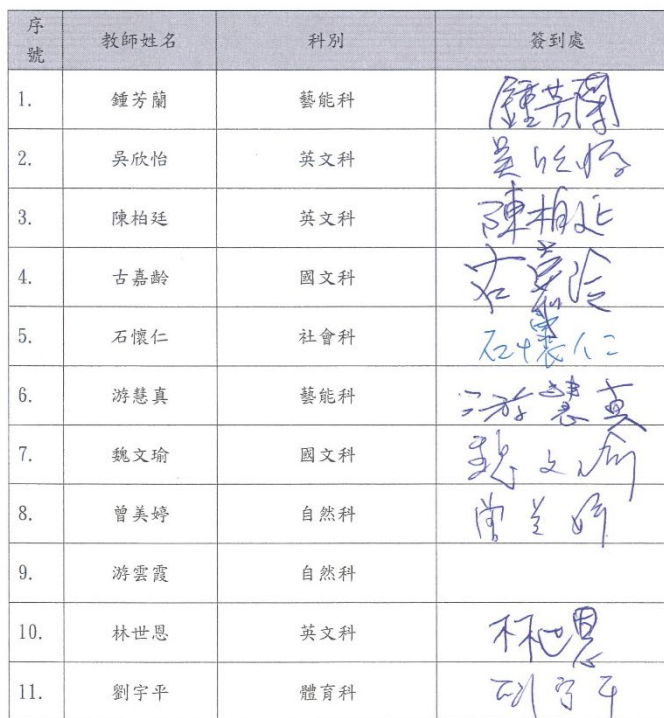 序號 教師姓名 科別 簽到處
1. 鍾芳蘭 藝能科 鍾芳蘭
2. 吳欣怡 英文科 吳欣怡
3. 陳柏廷 英文科 陳柏廷
4. 古嘉齡 國文科 古嘉齡
5. 石懷仁 社會科 石懷仁
6. 游慧真 藝能科 游慧真
7. 魏文瑜 國文科 魏文瑜
8. 曾美婷 自然科 曾美婷
9. 游雲霞 自然科
10. 林世恩 英文科 林世恩
11. 劉宇平 體育科 劉宇平